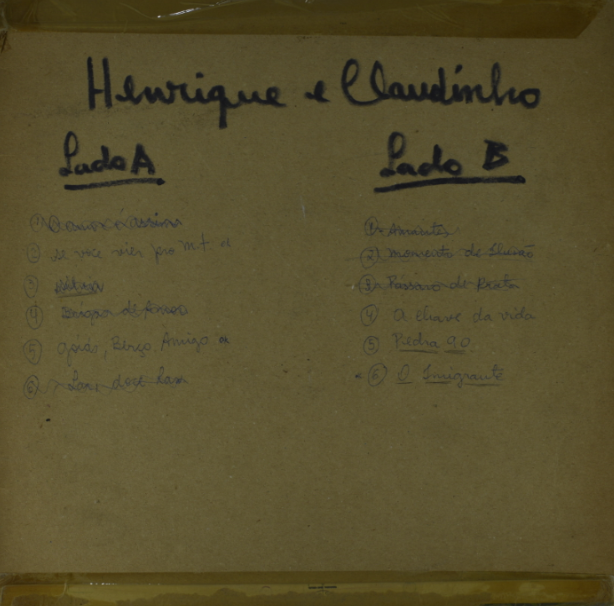 Henrique e Claudinho
Lado A
① O amor é assim
② se você vier pro mt.
③
④ Brigas de Amor
⑤ Goiás, Berço Amigo
⑥ Lar doce Lar
Lado B
① Amantes
② momento de Ilusão
③ Pássaro de Prata
④ A chave da vida
⑤ Pedra 90
⑥ O Imigrante